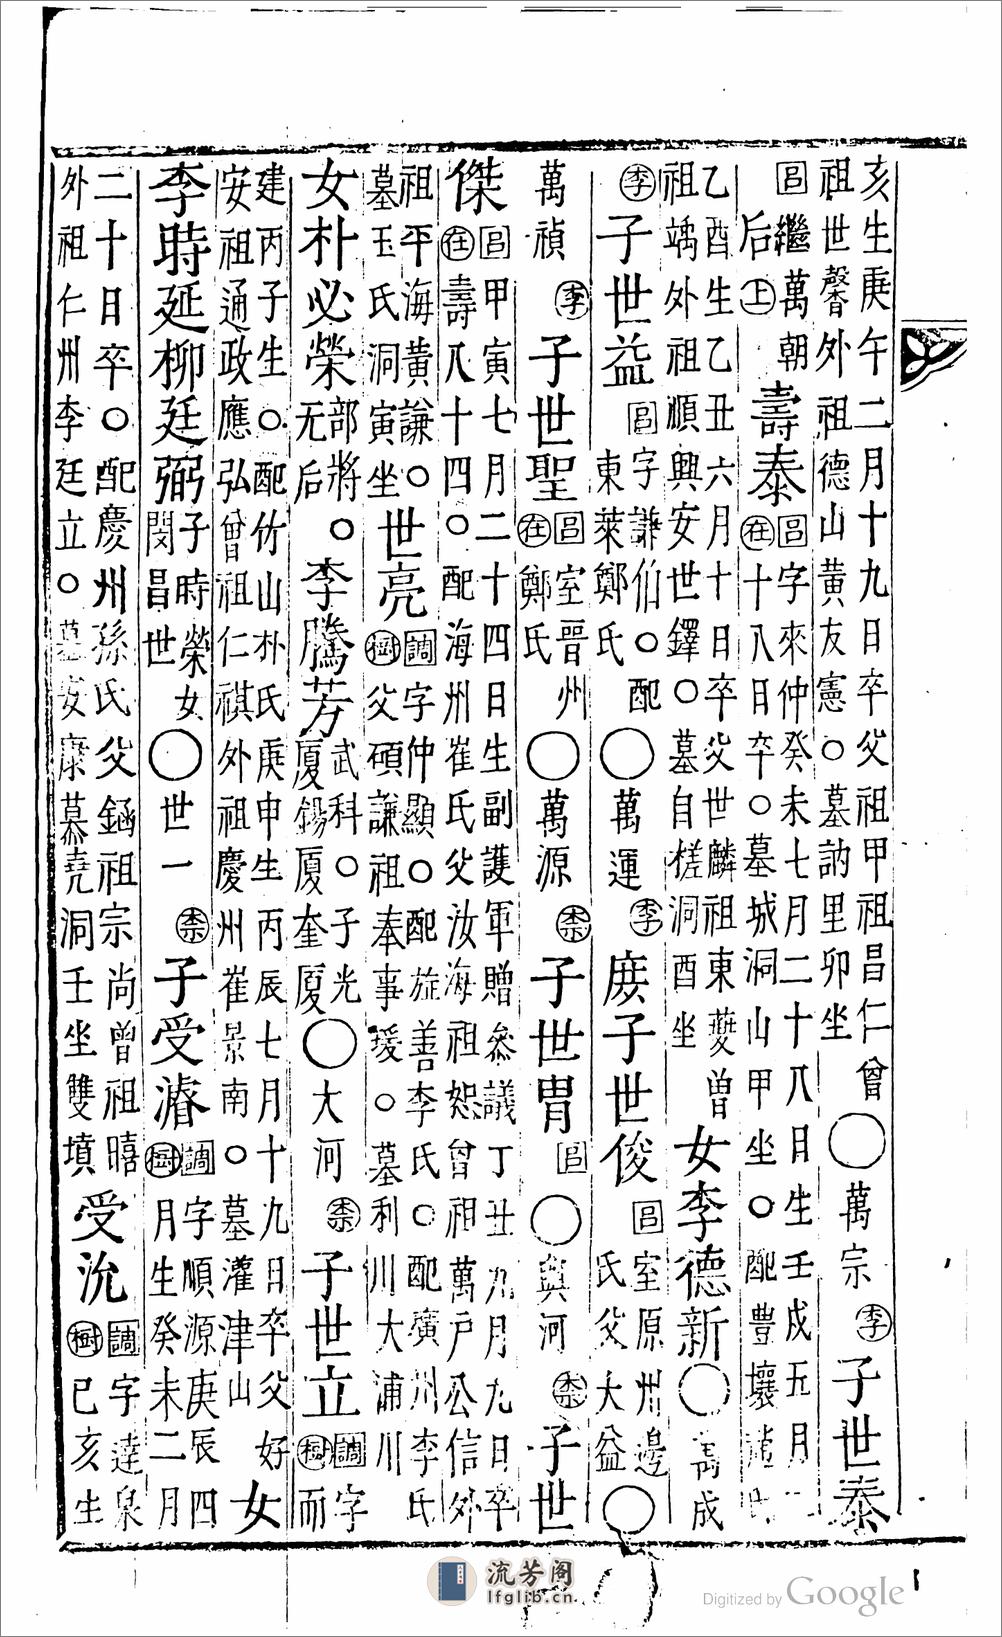 亥生庚午二月十九日卒父祖甲祖昌仁曾
祖世馨外祖德山黃友憲○墓訥里卯坐
○萬宗 李 子世泰
呂繼萬朝
后上
壽泰
呂字來仲癸未七月二十八日生壬戌五月
在十八日卒○墓城洞山甲坐○配豊壤趙氏
乙酉生乙丑六月十日卒父世麟祖東夔曾
祖竬外祖順興安世鐸○墓自槎洞酉坐
女李德新○萬成
李 子世益
呂字謙伯○配
東萊鄭氏
○萬運 李 庶子世俊
呂室原州邊
氏父大益
○
萬禎 李 子世聖
呂室晋州
在鄭氏
○萬源 柰 子世胄 呂 ○與河 柰 子世
傑
呂甲寅七月二十四日生副護軍贈叅議丁丑九月九日卒
在壽八十四○配海州崔氏父汝海祖恕曾祖萬戶公信外
祖平海黃謙○
墓玉氏洞寅坐
世亮
調字仲顯○配旌善李氏○配廣州李氏
樹父碩謙祖奉事瑗○墓利川大浦川
女朴必榮
部將○
无后
李騰芳
武科○子光
厦錫厦奎厦
○大河 柰 子世立
調字
樹而
建丙子生○配竹山朴氏庚申生丙辰七月十九日卒父好
安祖通政應弘曾祖仁祺外祖慶州崔景南○墓灌津山
女
李時延柳廷弼
子時榮女
閔昌世
○世一 柰 子受濬
調字順源庚辰四
樹月生癸未二月
二十日卒○配慶州孫氏父祖宗尚曾祖暿
外祖仁州李廷立○墓安康慕堯洞壬坐雙墳
受沇
調字達泉
樹己亥生
流芳阁
lfglib.cn
Digitized by Google